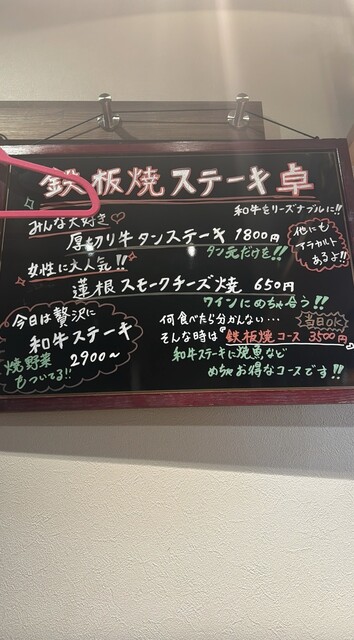 鉄板焼ステーキ卓
和牛をリーズナブルに!!
みんな大好き♡
厚切り牛タンステーキ 1800円
タン元だけを!!
他にも
アラカルト
あるよ!!
女性に大人気!!
蓮根スモークチーズ焼 650円
ワインにめちゃ合う!!
今日は贅沢に
和牛ステーキ
2900〜
焼野菜
もついてる!!
何食べたら分かんない…
当日OK
そんな時は『鉄板焼コース 3500円』
和牛ステーキに焼魚など
めちゃお得なコースです!!